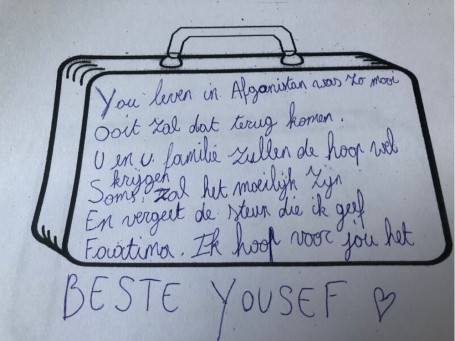 You leven in Afganistan was zo mooi
Ooit zal dat terug komen.
U en u familie zullen de hoop wel
krijgen
Soms, zal het moeilijk zijn
En vergeet de steun die ik geef
Faatima. Ik hoop voor jou het
BESTE YOUSEF ♡